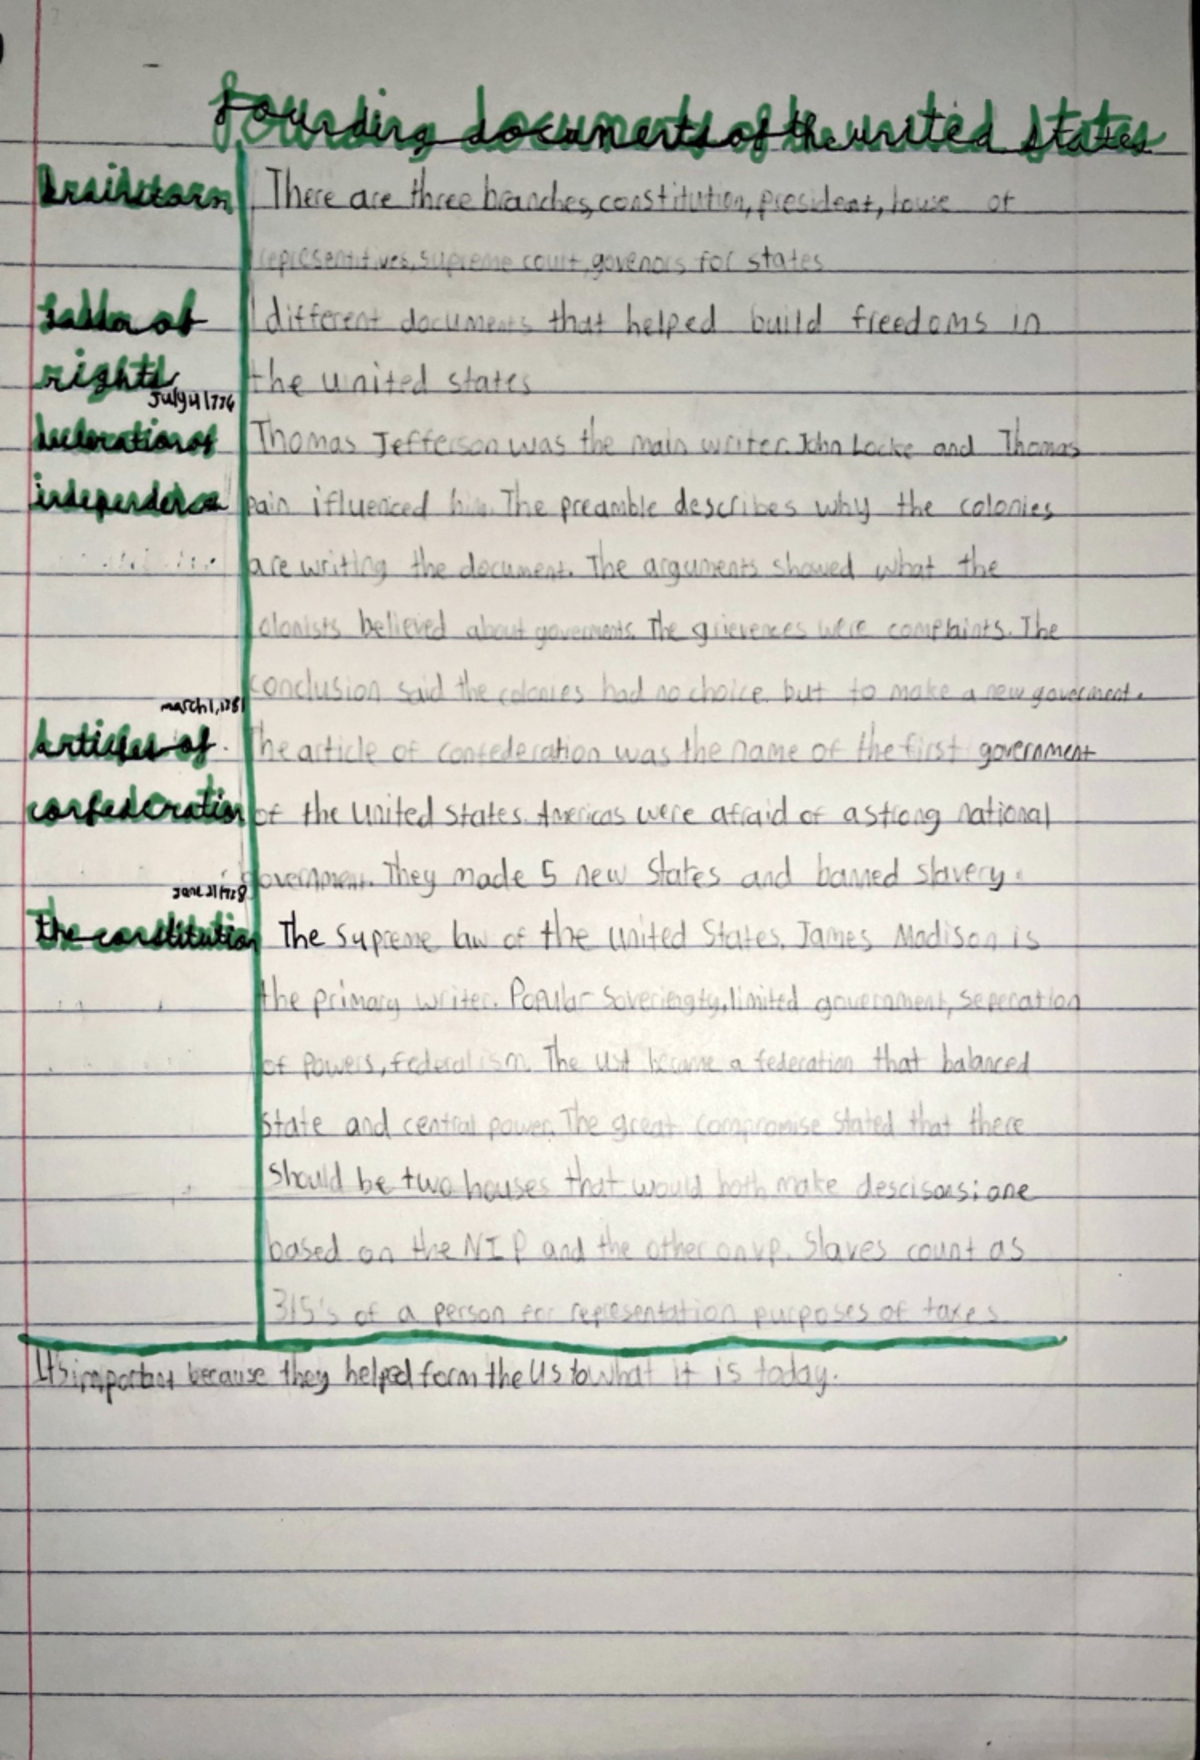 Founding documents of the united states
Brainstorm There are three branches, constitution, president, house of
representitives, supreme court, govenors for states
Ladder of different documents that helped build freedoms in
rights the united states
July 4 1776
declaration of Thomas Jefferson was the main writer. John Locke and Thomas
independence pain ifluenced him. The preamble describes why the colonies
are writing the document. The arguments showed what the
olonists believed about goverments. The grievences were complaints. The
conclusion said the colonies had no choice but to make a new goverment.
march 1, 1781
Articles of The article of confederation was the name of the first government
confederation of the United States. Americas were afraid of a strong national
government. They made 5 new States and banned slavery.
the constitution The supreme law of the United States. James Madison is
the primary writer. Popular Soveriengty, limited government, seperation
of Powers, federalism. The became a federation that balanced
State and central power. The great compromise stated that there
should be two houses that would both make one
based on the NJP and the other on VP. Slaves count as
3/5's of a person for representation purposes of taxes
It's important because they helped form the US to what it is today.